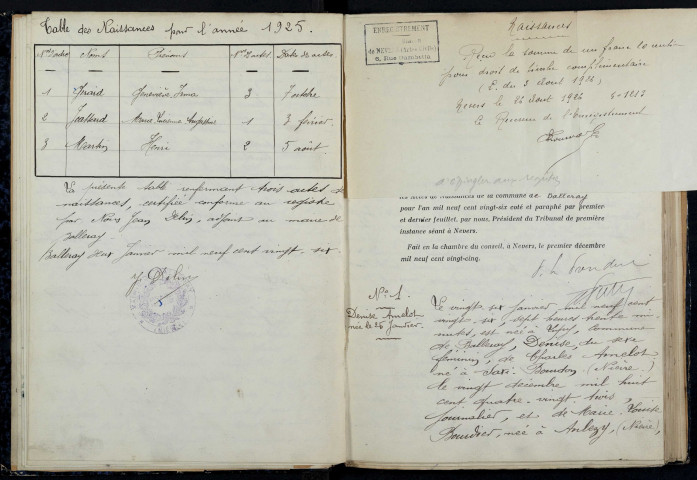 Table des Naissances pour l'année 1925.
Nos d'ordre Noms Prénoms Nos d'actes Date des actes
1 Geneviève 3 7 octobre
2 1 3 février
3 Henri 2 5 août.
La présente table renfermant trois actes de
naissances, certifiée conforme au registre
par Nous Jean adjoint au maire de
Balleray.
Balleray deux Janvier mil neuf cent vingt-six.
ENREGISTREMENT
de NEVERS
Naissances
Reçu la somme de un franc
pour droit de timbre complémentaire
(L. du 3 Août 1926)
Nevers le 26 Août 1926
Le Receveur de l'Enregistrement
à épingler aux registres
de la commune de Balleray
pour l'an mil neuf cent vingt-six coté et paraphé par premier
et dernier feuillet, par nous, Président du Tribunal de première
instance séant à Nevers.
Fait en la chambre du conseil, à Nevers, le premier décembre
mil neuf cent vingt-cinq.
No 1.
Denise Amelot
née le 26 Janvier.
Le vingt six janvier mil neuf cent
vingt-six, sept heures trente mi-
nutes, est née à commune
de Balleray, Denise, du sexe
féminin, de Charles Amelot
né à Saxi-Bourdon (Nièvre)
le vingt décembre mil huit
cent quatre-vingt-trois,
journalier, et de Marie-Louise
née à Anlezy, (Nièvre),